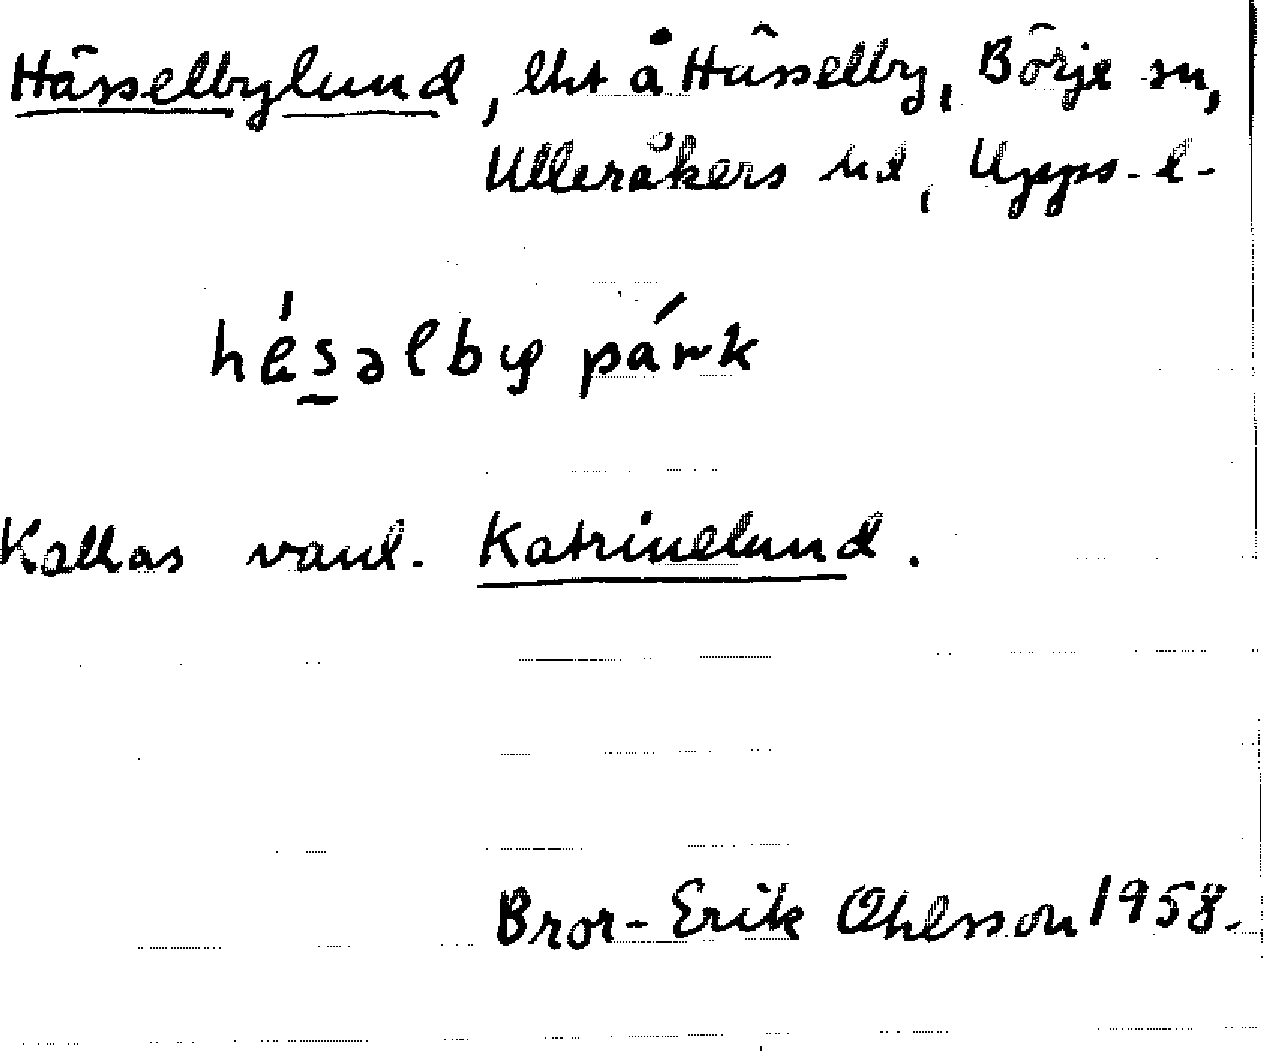 Hässelbylund, lht å Hässelby, Börje sn,
Ulleråkers hd, Upps. l.
hésəlby párk
Kallas vanl. Katrinelund.
Bror-Erik Ohlsson 1958.